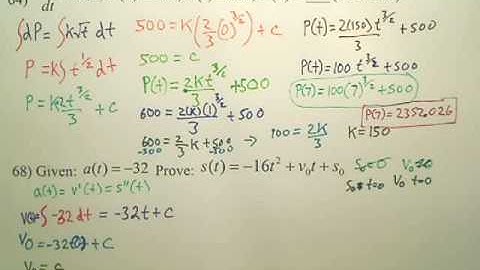 dt
∫dP = ∫k√t dt
P = K∫ t^(1/2) dt
P = K 2t^(3/2)/3 + C
500 = K(2/3(0)^(3/2)) + C
500 = C
P(t) = 2Kt^(3/2)/3 + 500
600 = 2(K)(1)^(3/2)/3 + 500
600 = 2/3 K + 500
-500 -500
100 = 2K/3
K = 150
P(t) = 2(150)t^(3/2)/3 + 500
P(t) = 100 t^(3/2) + 500
P(7) = 100(7)^(3/2) + 500
P(7) = 2352.026
68) Given: a(t) = -32 Prove: s(t) = -16t² + v₀t + s₀
a(t) = v'(t) = s''(t)
= ∫-32 dt = -32t + C
V₀ = -32(0) + C
V₀ = C